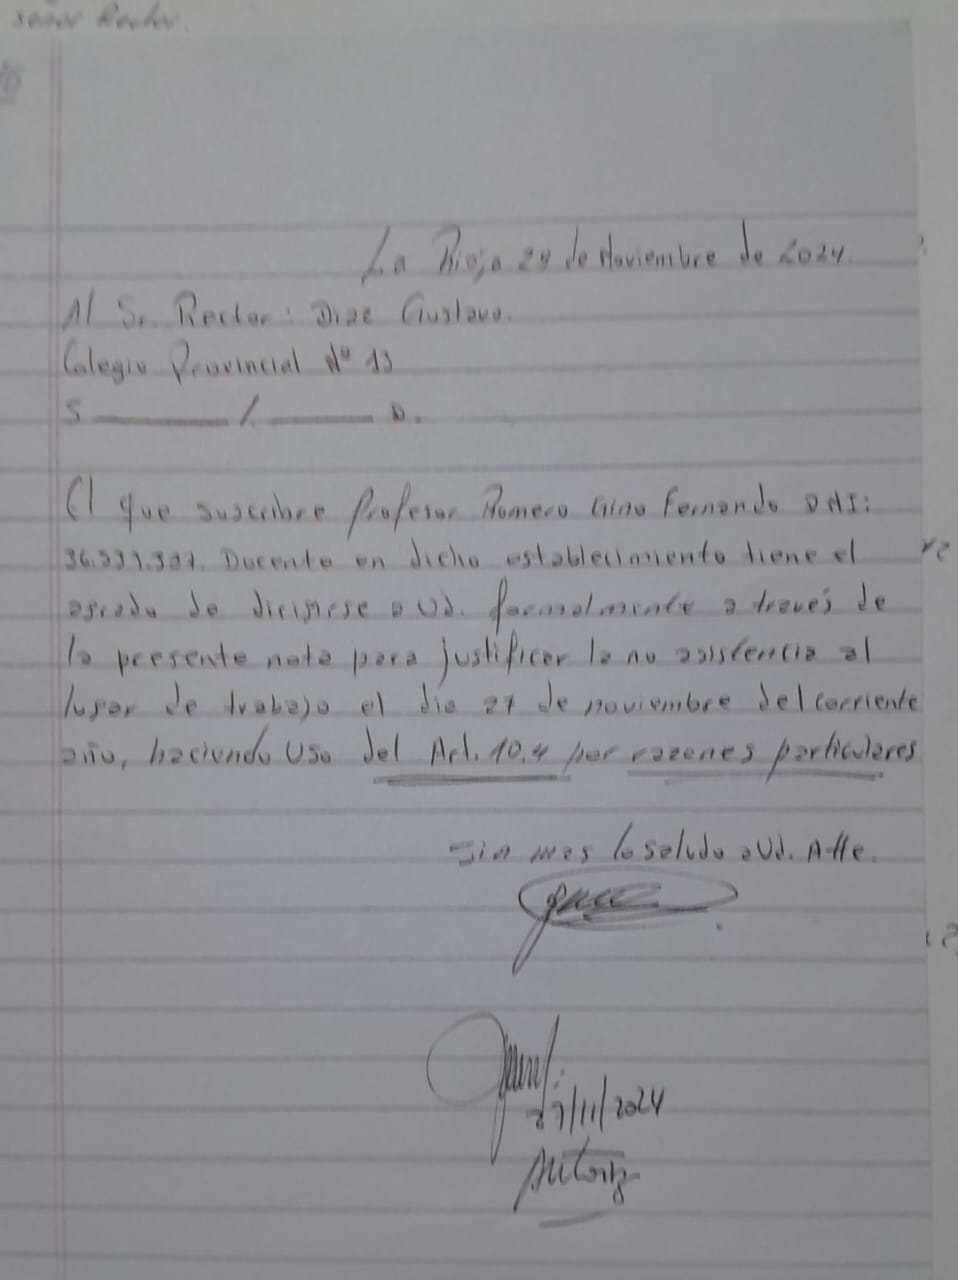 señor Rector.
La Rioja 28 de Noviembre de 2024.
Al Sr. Rector: Diaz Gustavo.
Colegio Provincial Nº 13
S ——— / ——— D.
El que suscribe Profesor Romero Gino Fernando DNI:
Docente en dicho establecimiento tiene el
agrado de dirigirse a Ud. formalmente a través de
la presente nota para justificar la no asistencia al
lugar de trabajo el dia 27 de noviembre del corriente
año, haciendo Uso del Art. 10.4 por razones particulares
Sin mas lo saludo a Ud. Atte.
27/11/2024